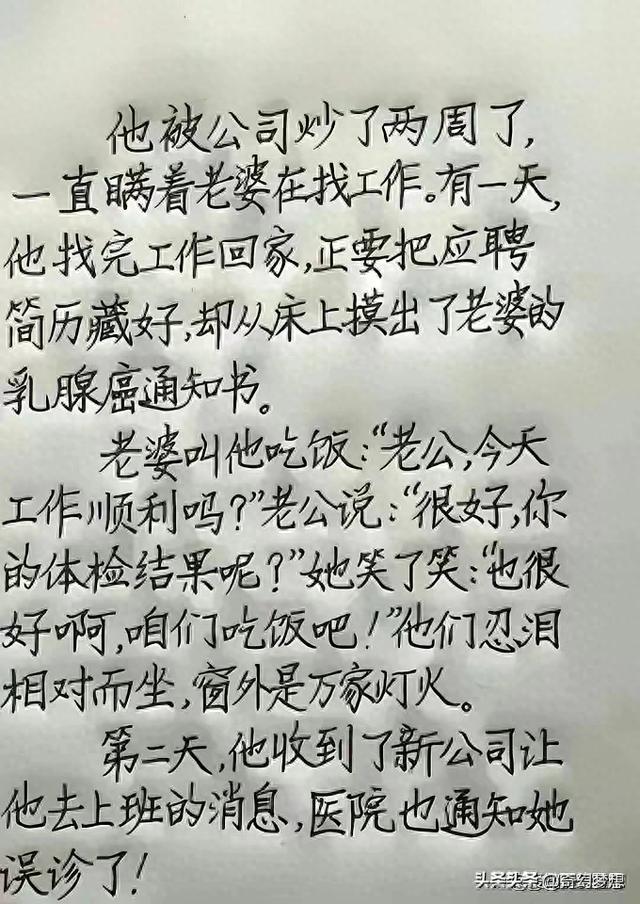 他被公司炒了两周了,
一直瞒着老婆在找工作。有一天,
他找完工作回家,正要把应聘
简历藏好,却从床上摸出了老婆的
乳腺癌通知书。
老婆叫他吃饭:“老公,今天
工作顺利吗?”老公说:“很好,你
的体检结果呢?”她笑了笑:“也很
好啊,咱们吃饭吧!”他们忍泪
相对而坐,窗外是万家灯火。
第二天,他收到了新公司让
他去上班的消息,医院也通知她
误诊了!
头条 @奇幻梦想